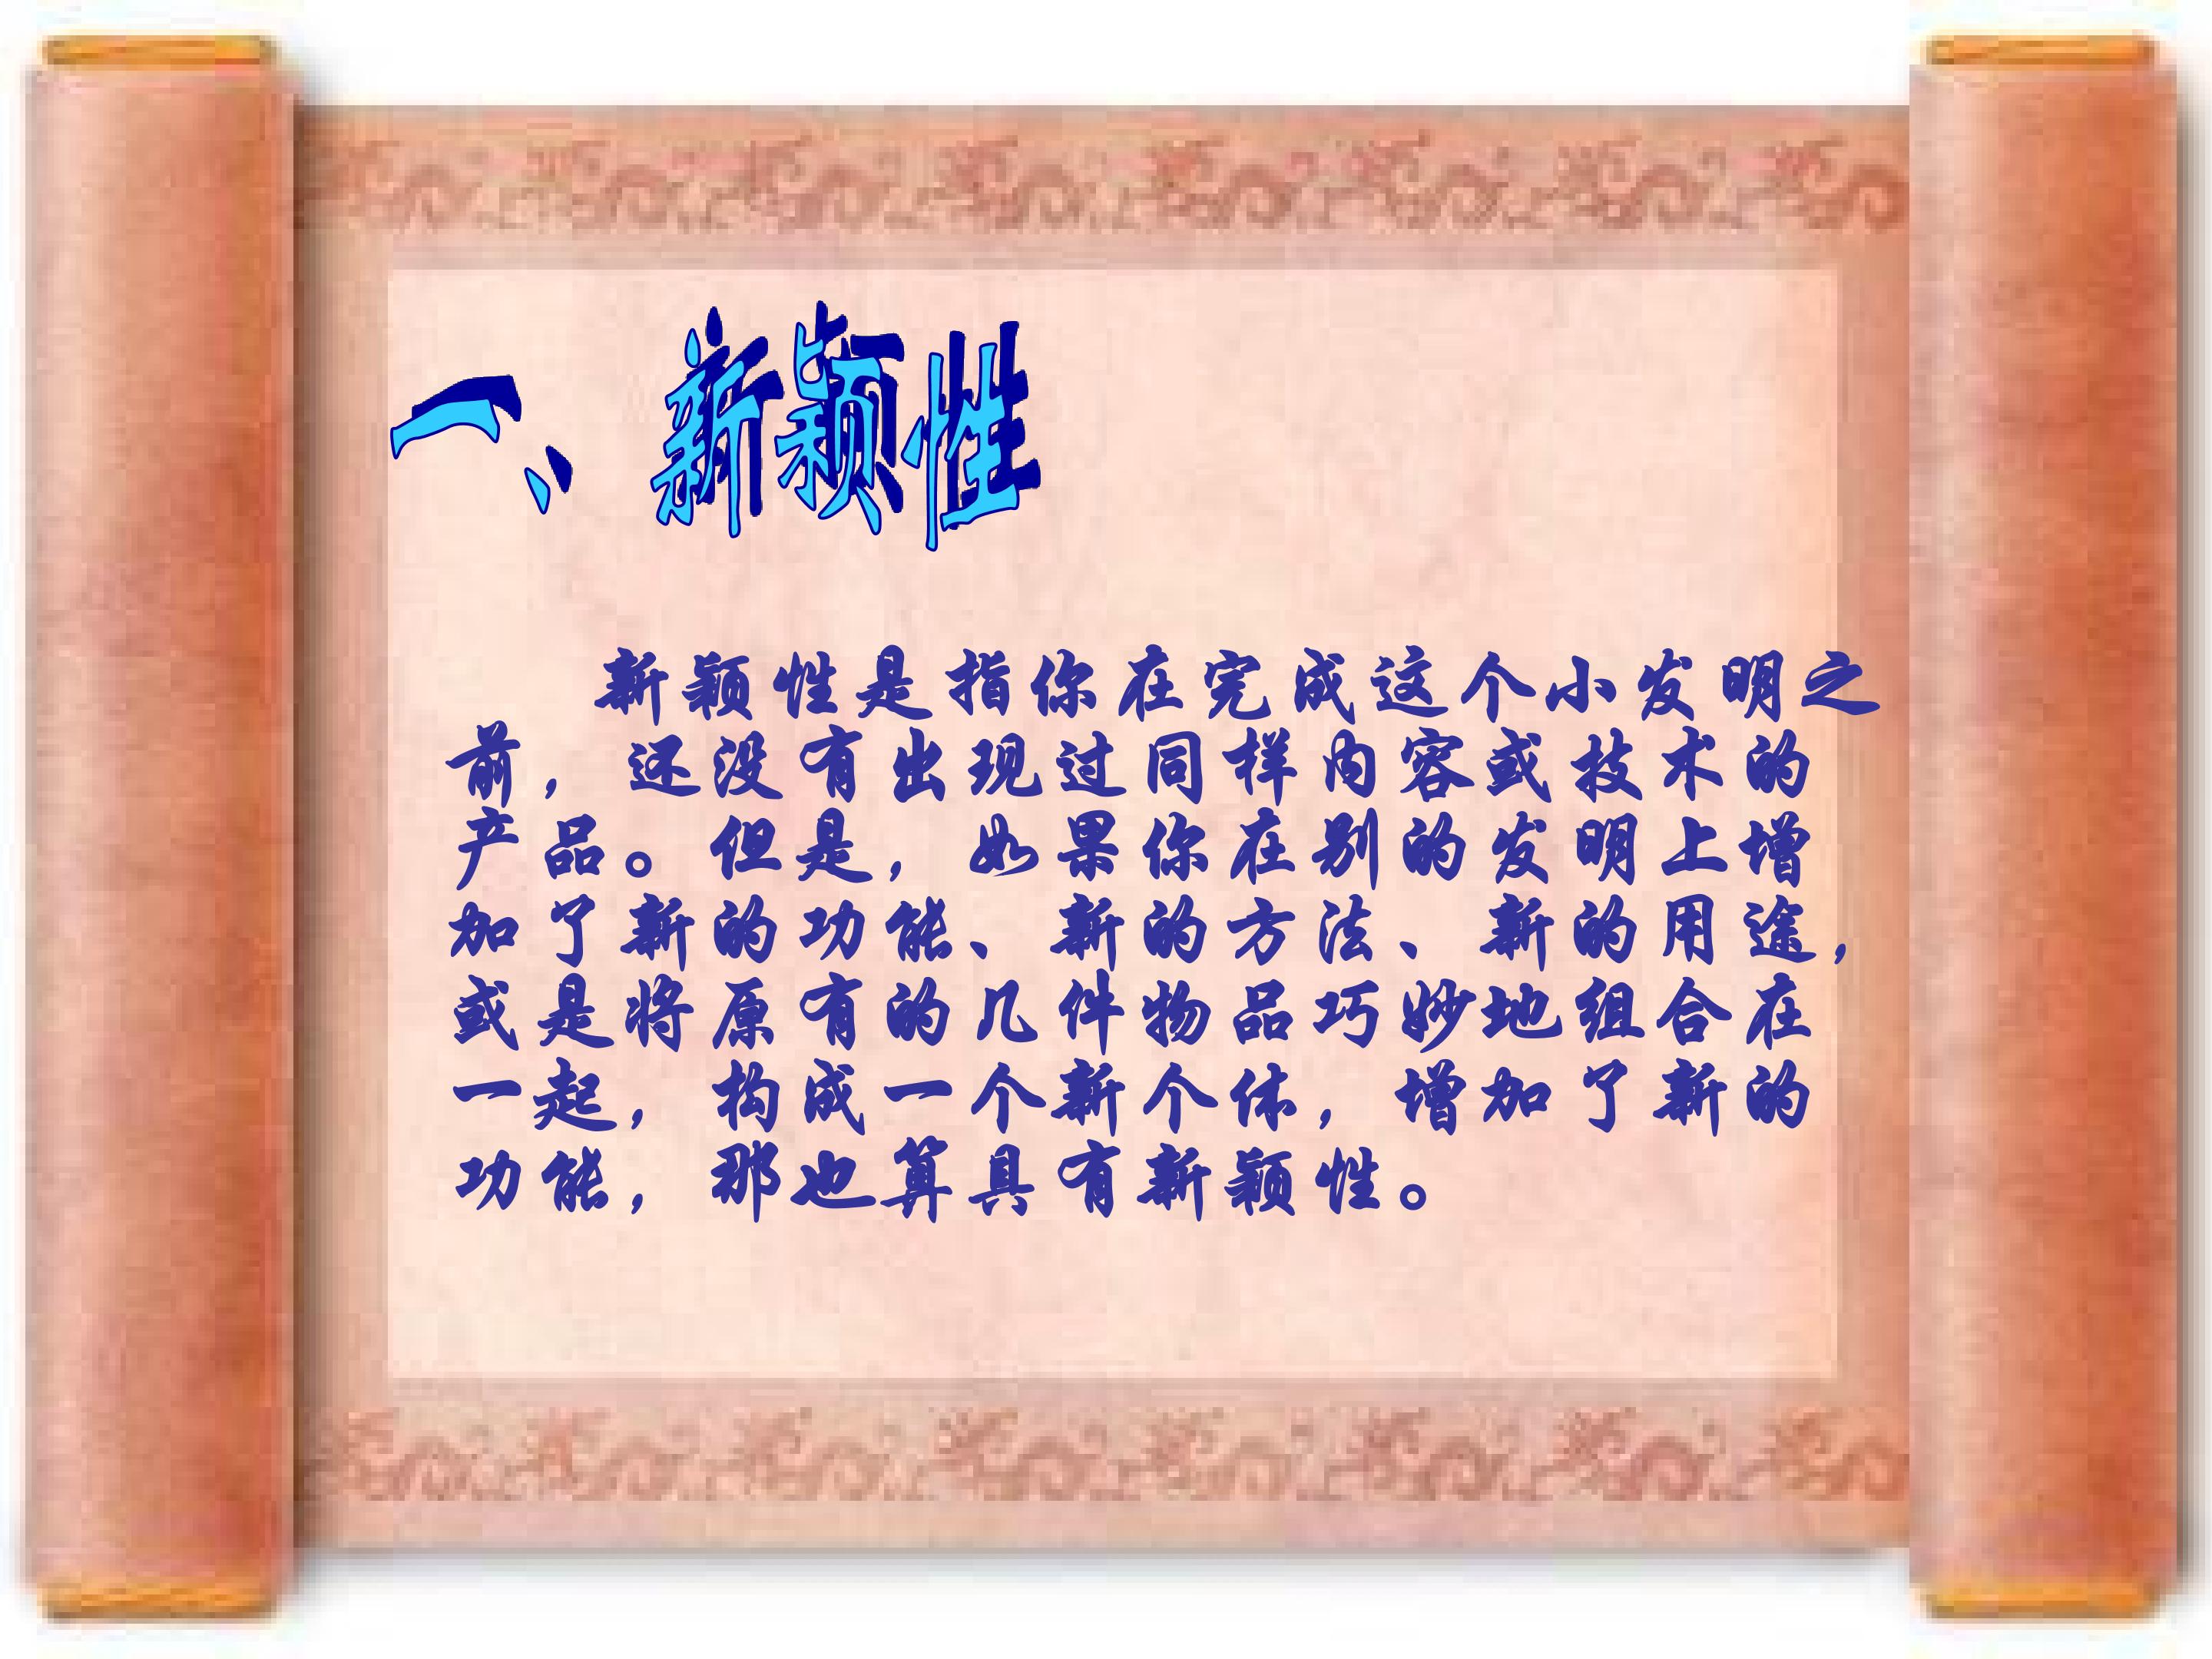 一、新颖性
新颖性是指你在完成这个小发明之
前，还没有出现过同样内容或技术的
产品。但是，如果你在别的发明上增
加了新的功能、新的方法、新的用途，
或是将原有的几件物品巧妙地组合在
一起，构成一个新个体，增加了新的
功能，那也算具有新颖性。